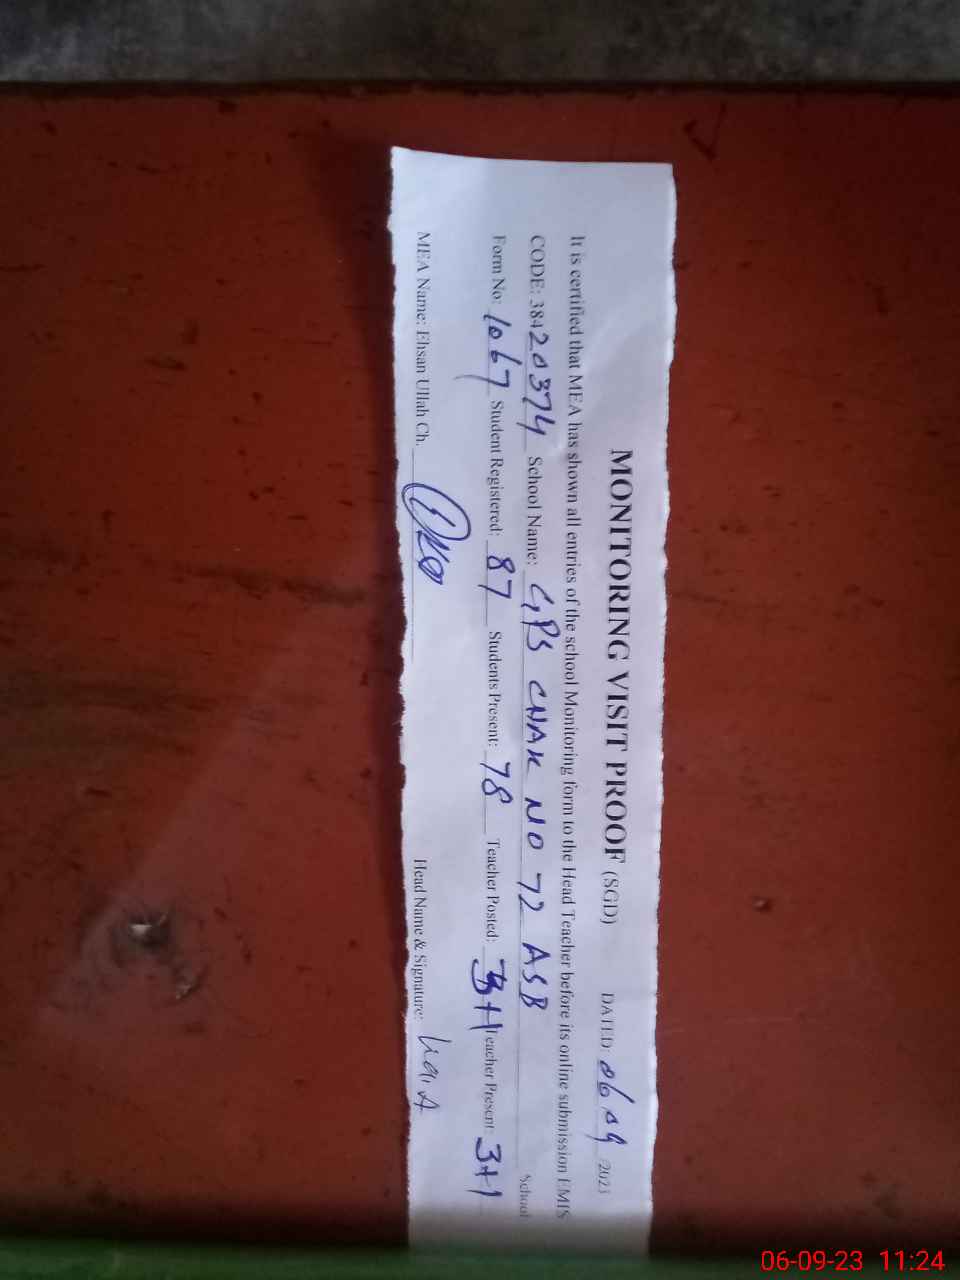 MONITORING VISIT PROOF (SGD) DATED: 06 09 /2023
It is certified that MEA has shown all entries of the school Monitoring form to the Head Teacher before its online submission EMIS
CODE: 38420374 School Name: GPS CHAK NO 72 ASB School
Form No: 1067 Student Registered: 87 Students Present: 78 Teacher Posted: 3+1 Teacher Present: 3+1
MEA Name: Ehsan Ullah Ch. Head Name & Signature:
06-09-23 11:24